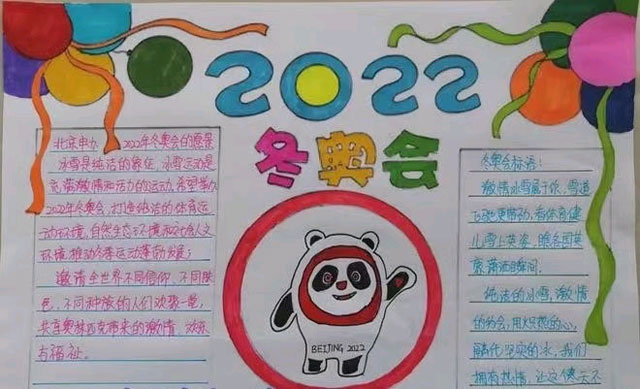 2022
冬奥会
北京申办2022年冬奥会的愿景
冰雪是纯洁的象征,冰雪运动是
充满激情和活力的运动,希望举办
2022年冬奥会,打造纯洁的体育运
动环境,自然生态环境和社会人文
环境,推动冬季运动蓬勃发展;
邀请全世界不同信仰、不同肤
色、不同种族的人们欢聚一堂,
共享奥林匹克带来的激情、欢乐
与福祉。
BEIJING 2022
冬奥会标语:
激情冰雪属于你,雪道
飞驰更精彩,看体育健
儿雪上英姿,瞻各国英
豪潇洒瞬间.
纯洁的冰雪,激情
的约会,用火热的心,
融化坚实的冰,我们
拥有热情,让这